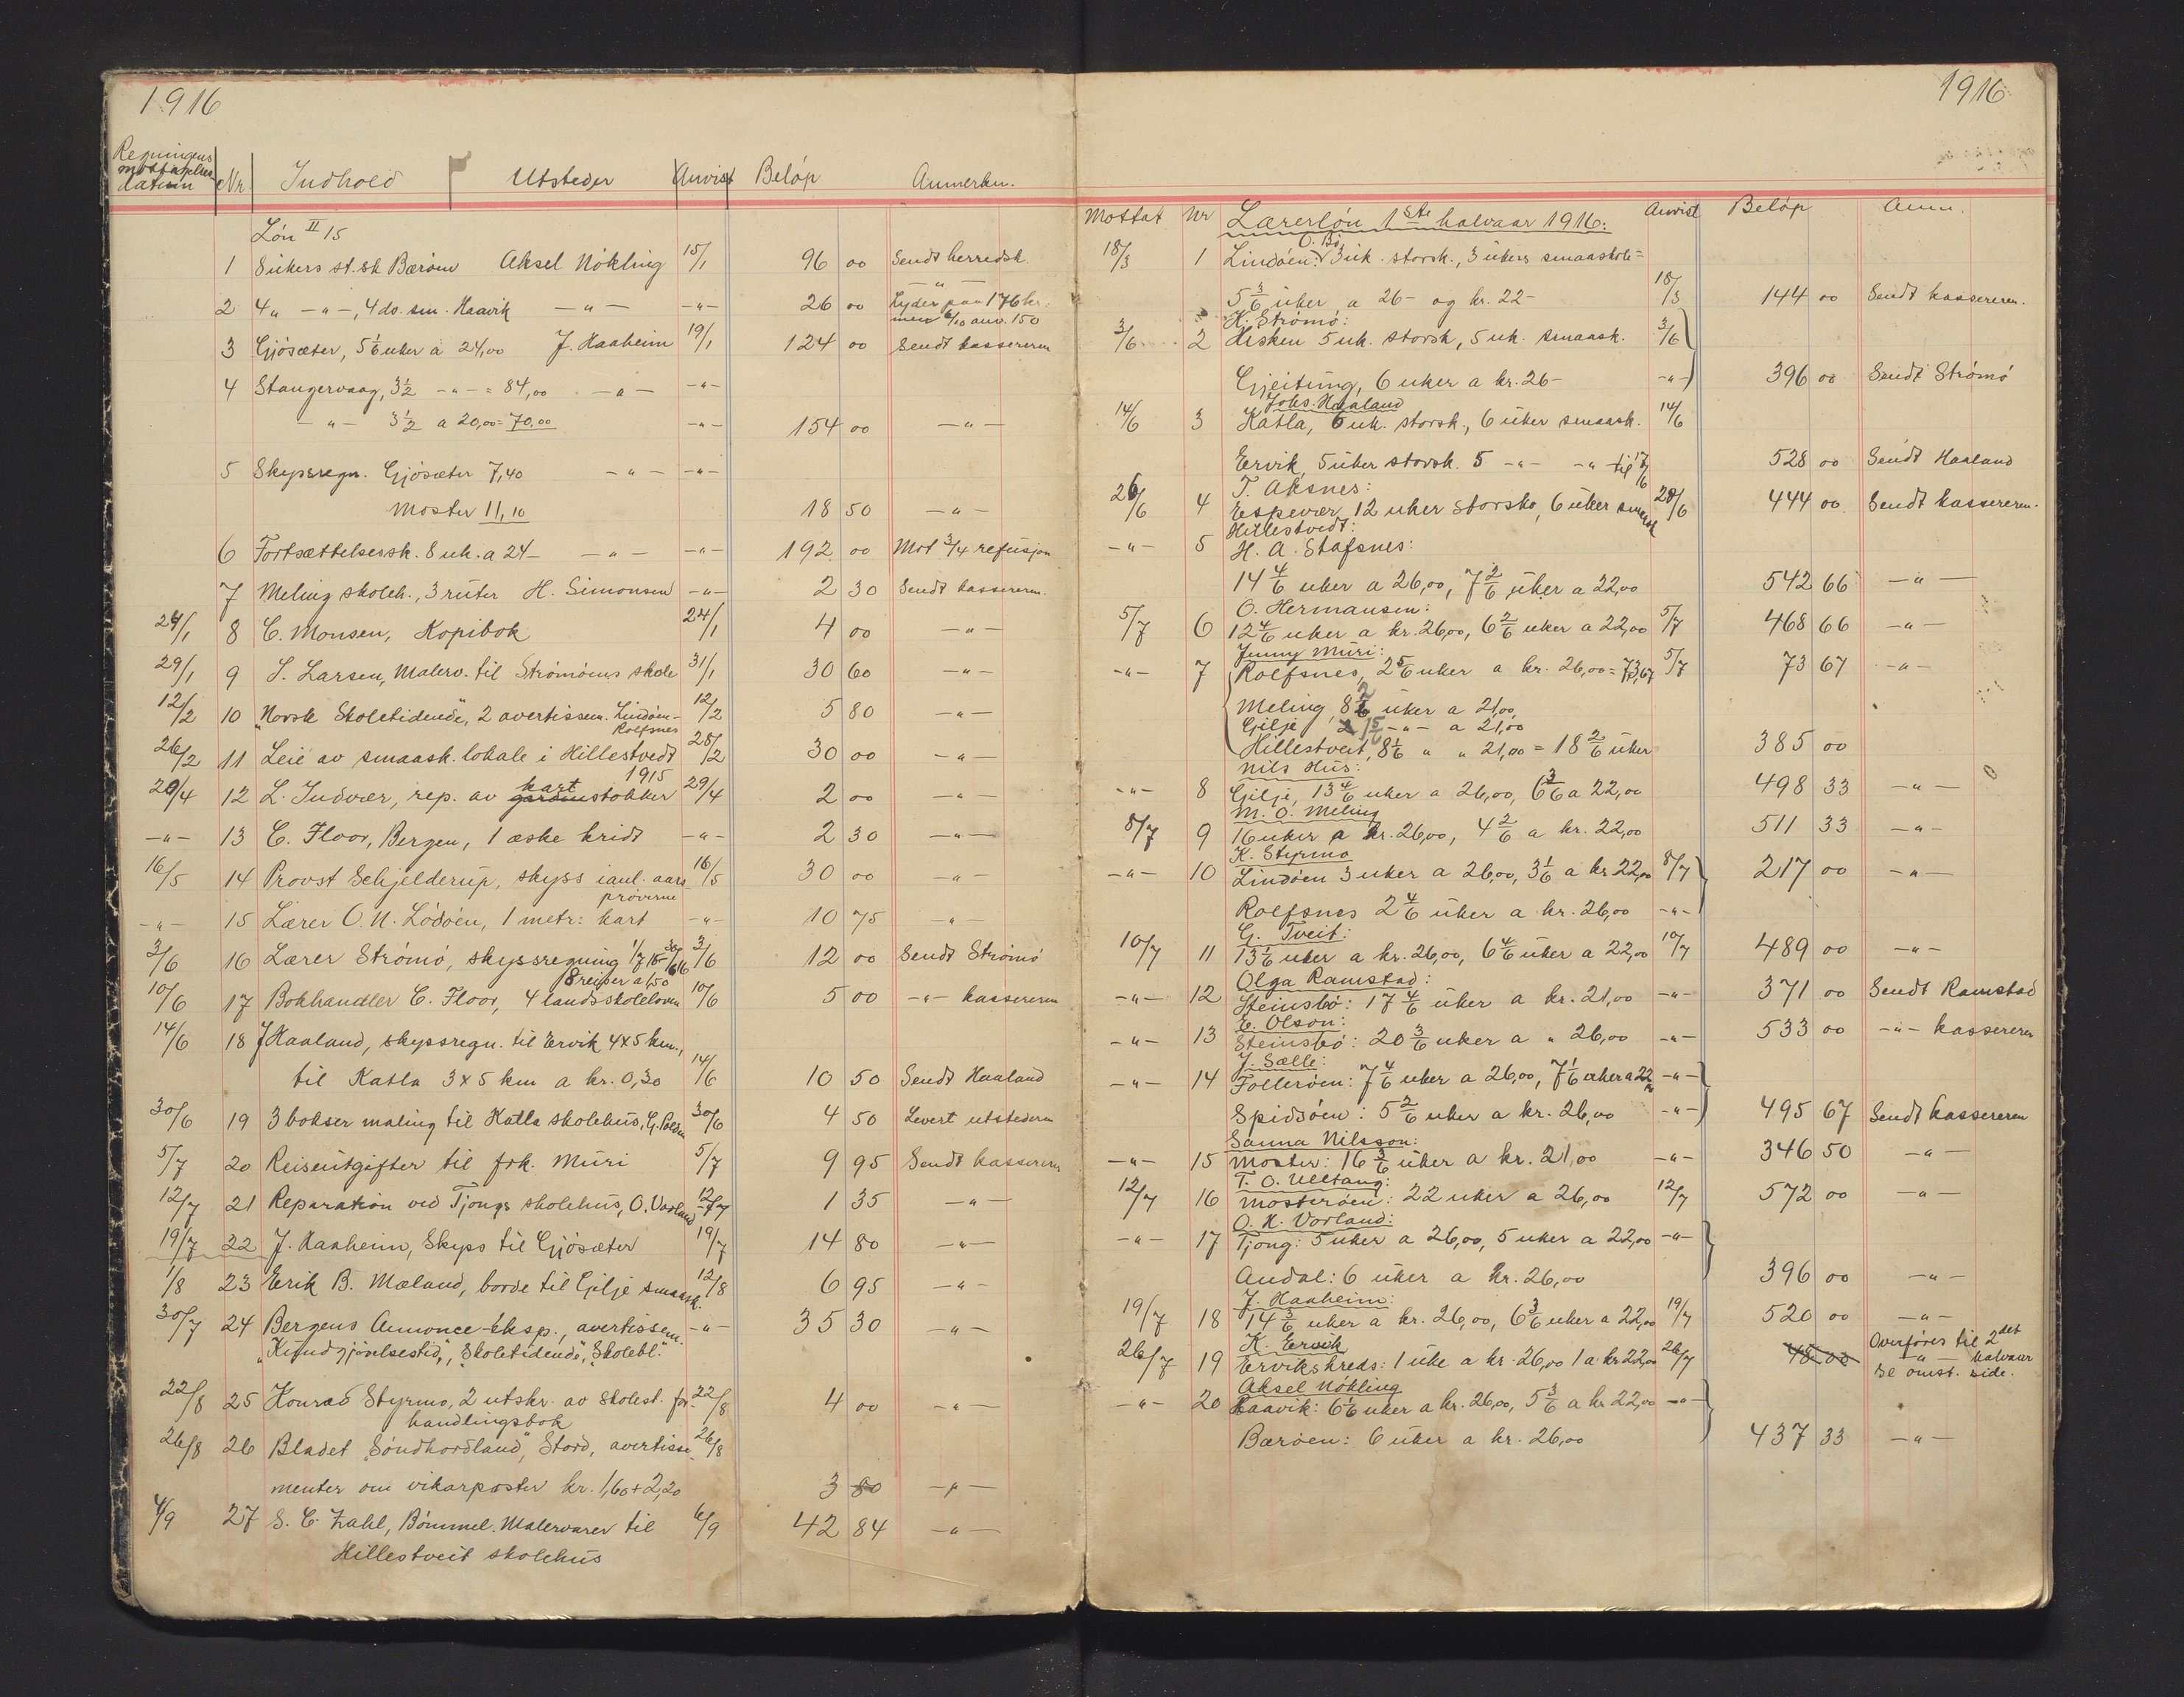 1916
Regningens
mottagelses
datum Nr. Indhold Utsteder Anvist Beløp Anmerkn.
Løn II 15
1 8 ukers st. sk Børøen Aksel Nökling 15/1 96 00 Sendt herredsk.
2 4 " -"-, 4 do. sm. Haavik -"- -"- 26 00 Lyder paa 176 kr.
men 6/10 anv. 150
3 Gjösæter, 5 1/6 uker a 24,00 J. Haaheim 19/1 124 00 Sendt kassereren
4 Stangervaag, 3 1/2 -"- = 84,00 -"- -"-
-"- 3 1/2 a 20,00 = 70.00 -"- 154 00 -"-
5 Skyssregn. Gjösæter 7,40 -"- -"-
Moster 11,10 18 50 -"-
6 Fortsættelsessk. 8 uk. a 24- -"- -"- 192 00 Mot 3/4 refusjon
7 Meling skoleh., 3 ruter H. Simonsen -"- 2 30 Sendt kassereren.
24/1 8 C. Monsen, Kopibok 24/1 4 00 -"-
29/1 9 S. Larsen, Malerv. til Strömöens skole 31/1 30 60 -"-
12/2 10 "Norsk Skoletidende", 2 avertissem. Lindöen- 12/2 5 80 -"-
Rolfsnes
26/2 11 Leie av smaask. lokale i Hillestvedt 28/2 30 00 -"-
1915
29/4 12 L. Indvær, rep. av kart gardinstokker 29/4 2 00 -"-
-"- 13 C. Floor, Bergen, 1 æske kridt -"- 2 30 -"-
16/5 14 Provst Schjelderup, skyss ianl. aars- 16/5 30 00 -"-
prøverne
-"- 15 Lærer O. N. Lödöen, 1 metr: kart -"- 10 75 -"-
3/6 16 Lærer Strömö, skyssregning 1/7 15-30/6 16 3/6 12 00 Sendt Strömö
8 reiser a 1,50
10/6 17 Bokhandler C. Floor, 4 landsskoleloven 10/6 5 00 -"- kassereren
14/6 18 J Haaland, skyssregn. til Ervik 4x5 km.,
til Katla 3x5 km a kr. 0,30 14/6 10 50 Sendt Haaland
30/6 19 3 bokser maling til Katla skolehus, G. 30/6 4 50 Levert utstederen
5/7 20 Reiseutgifter til frk. Muri 5/7 9 95 Sendt kassereren
12/7 21 Reparation ved Tjongs skolehus, O. Vorland 12/7 1 35 -"-
19/7 22 J. Haaheim, Skyss til Gjösæter 19/7 14 80 -"-
1/8 23 Erik B. Mæland, borde til Gilje smaask. 12/8 6 95 -"-
30/7 24 Bergens Annonce-Eksp., avertissem. -"- 35 30 -"-
"Kundgjörelsestid.", "Skoletidende", "Skolebl."
22/8 25 Konrad Styrmo, 2 utskr. av Skolest. for- 22/8 4 00 -"-
handlingsbok
26/8 26 Bladet "Söndhordland", Stord, avertisse- 26/8
menter om vikarposter kr. 1,60+2,20 3 80 -"-
4/9 27 S. C. Zahl, Bömmel. Malervarer til 6/9 42 84 -"-
Hillestveit skolehus
1916
Mottat Nr Lærerlön 1ste halvaar 1916: Anvist Beløp Anm.
O. Bö
18/3 1 Lindöen: 3 uk. storsk., 3 ukers smaaskole =
5 3/6 uker a 26- og kr. 22- 18/3 144 00 Sendt kassereren.
K. Strömö:
3/6 2 Hisken 5 uk. storsk, 5 uk. smaask. 3/6
Gjeitung, 6 uker a kr. 26- -"- 396 00 Sendt Strömö
Johs. Haaland
14/6 3 Katla, 6 uk. storsk., 6 uker smaask. 14/6
Ervik, 5 uker storsk. 5 -"- -"- til 17/6 528 00 Sendt Haaland
T. Aksnes:
26/6 4 Espevær, 12 uker storsko, 6 uker smaask 28/6 444 00 Sendt kassereren.
Hillestvedt:
-"- 5 H. A. Stafsnes:
14 4/6 uker a 26,00, 7 2/6 uker a 22,00 542 66 -"-
O. Hermansen:
5/7 6 12 4/6 uker a kr. 26,00, 6 2/6 uker a 22,00 5/7 468 66 -"-
Jenny Muri:
-"- 7 Rolfsnes, 2 5/6 uker a kr. 26,00 = 73,67 5/7 73 67 -"-
Meling 8 2/6 uker a 21,00
Gilje 1 5/6 -"- a 21,00
Hillestveit, 8 1/6 " " 21,00 = 18 2/6 uker 385 00
Nils Hus:
-"- 8 Gilje, 13 4/6 uker a 26,00, 6 3/6 a 22,00 498 33 -"-
M. O. Meling
8/7 9 16 uker a kr. 26,00, 4 2/6 a kr. 22,00 511 33 -"-
K. Styrmo
-"- 10 Lindöen 3 uker a 26,00, 3 1/6 a kr 22,00 8/7 217 00 -"-
Rolfsnes 2 4/6 uker a kr. 26,00 -"-
G. Tveit:
10/7 11 13 1/6 uker a kr. 26,00, 6 4/6 uker a 22,00 10/7 489 00 -"-
Olga Ramstad:
-"- 12 Steinsbö: 17 4/6 uker a kr. 21,00 -"- 371 00 Sendt Ramstad
E. Olson:
-"- 13 Steinsbö: 20 3/6 uker a " 26,00 -"- 533 00 -"- kassereren
J. Sælle:
-"- 14 Folleröen: 7 4/6 uker a 26,00, 7 1/6 uker a 22,00 -"-
Spidsöen: 5 2/6 uker a kr. 26,00 -"- 495 67 Sendt kassereren
Sanna Nilsson:
-"- 15 Moster: 16 3/6 uker a kr. 21,00 -"- 346 50 -"-
T. O. Ueltang:
12/7 16 Mosterøen: 22 uker a 26,00 12/7 572 00 -"-
O. K. Vorland:
-"- 17 Tjong: 5 uker a 26,00, 5 uker a 22,00 -"-
Andal: 6 uker a kr. 26,00 396 00 -"-
J. Haaheim:
19/7 18 14 3/6 uker a kr. 26,00, 6 3/6 uker a 22,00 19/7 520 00 -"-
K. Ervik
26/7 19 Ervikskreds: 1 uke a kr. 26,00 1 a kr 22,00 26/7 48 00 Overföres til 2det
-"- halvaar
se omst. side.
Aksel Nökling
-"- 20 Haavik: 6 1/6 uker a kr. 26,00, 5 3/6 a kr 22,00 -"-
Børöen: 6 uker a kr. 26,00 437 33 -"-